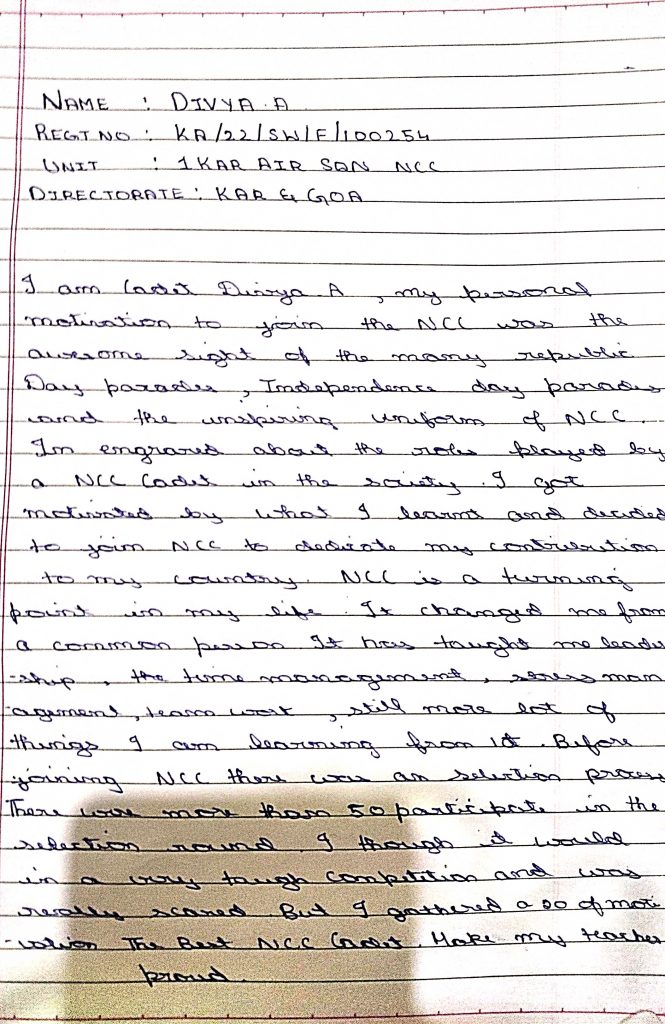 NAME : DIVYA A
REGT NO : KA/22/SW/F/100254
UNIT : 1 KAR AIR SQN NCC
DIRECTORATE : KAR & GOA
I am Cadet Divya A , my personal
motivation to join the NCC was the
awesome sight of the many republic
Day parades , Independence day parades
and the inspiring uniform of NCC .
Im engraved about the roles played by
a NCC Cadet in the society . I got
motivated by what I learnt and decided
to join NCC to dedicate my contribution
to my country . NCC is a turning
point in my life . It changed me from
a common person It has taught me leader
-ship , the time management , stress man
-agement , team work , still more lot of
things I am learning from it . Before
joining NCC there was an selection process
There were more than 50 participate in the
selection round . I though it would
in a very tough competition and was
really scared . But I gathered a of moti
-vation The Best NCC Cadet . Make my teacher
proud .